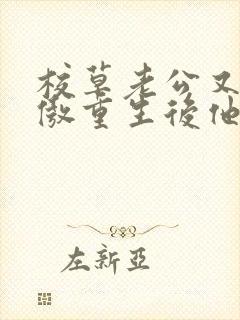 校草老公又
傲重生後他
左新亞